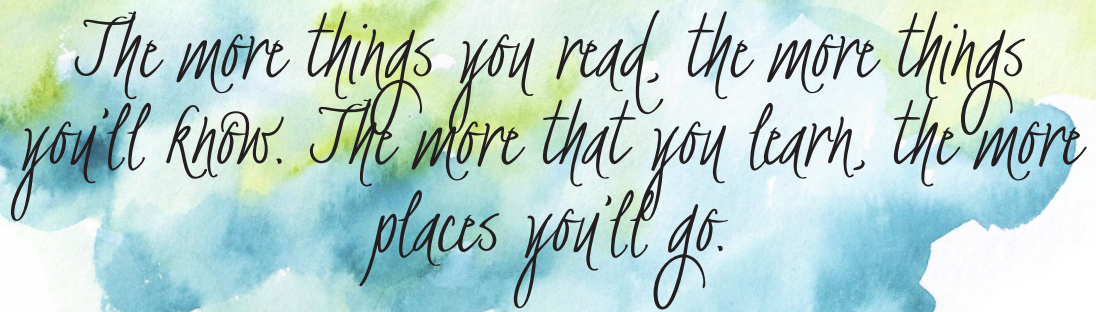 The more things you read, the more things
you'll know. The more that you learn, the more
places you'll go.